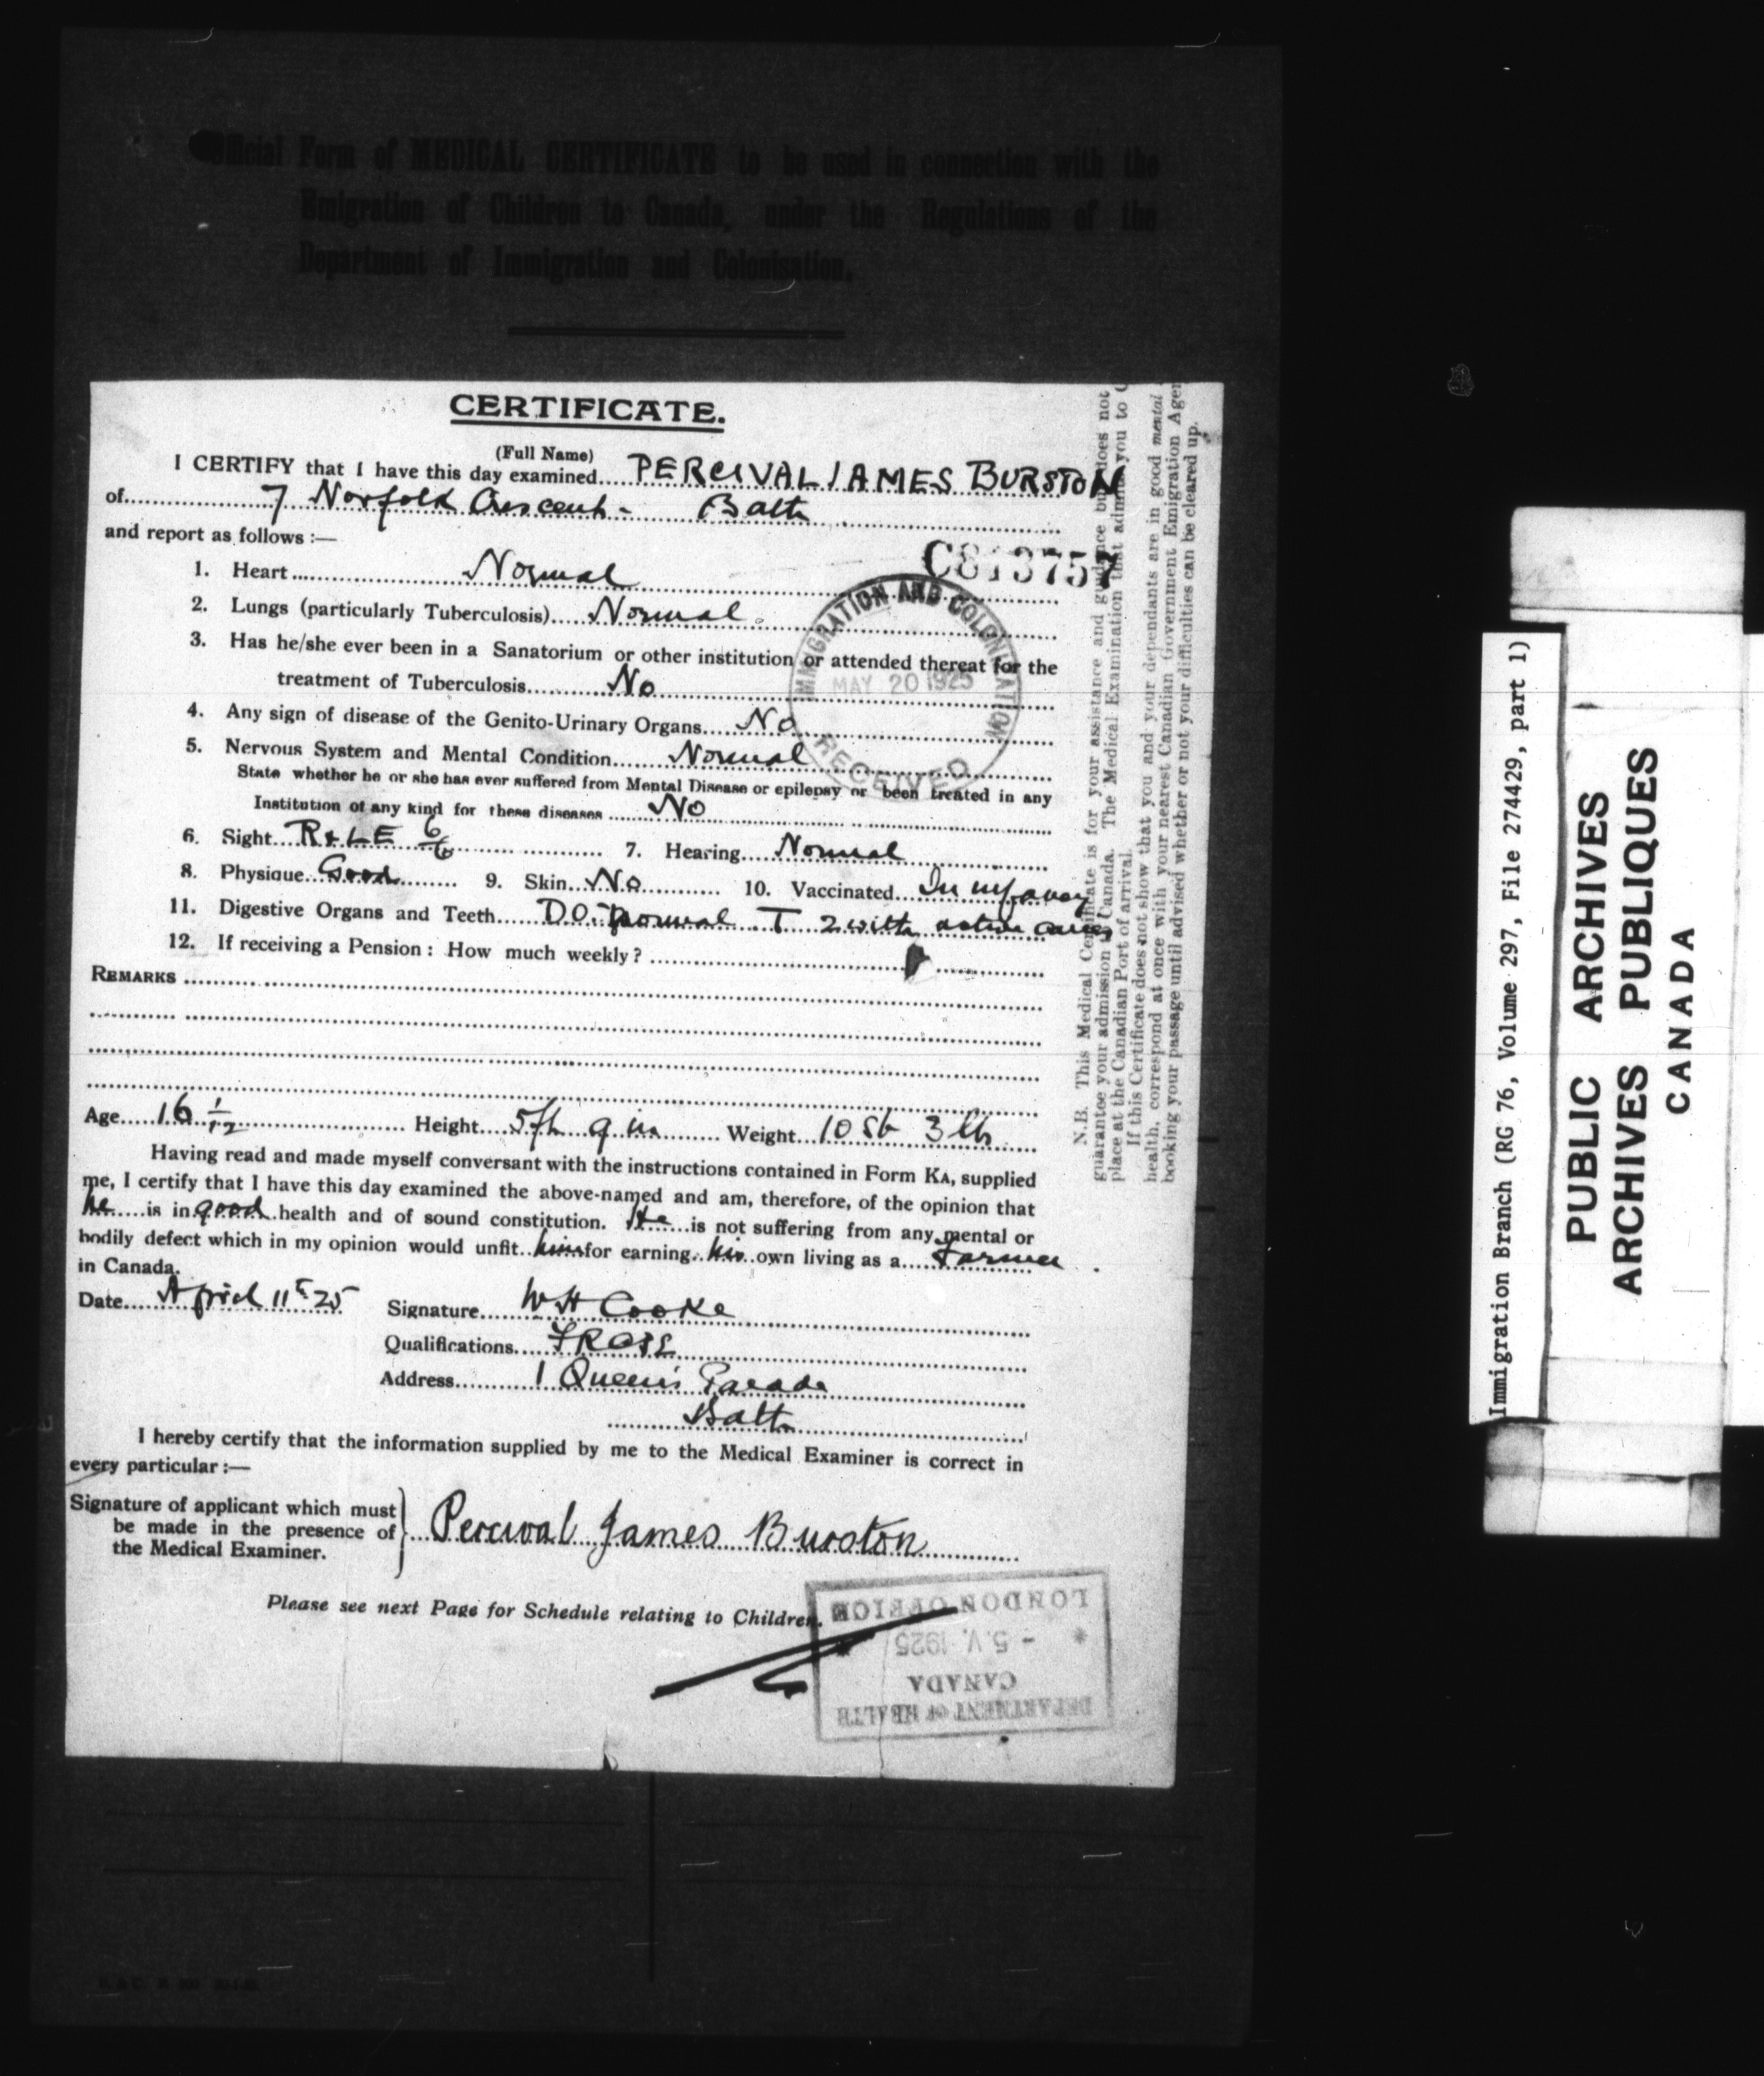 Official Form of MEDICAL CERTIFICATE to be used in connection with the
Emigration of Children to Canada, under the Regulations of the
Department of Immigration and Colonisation.
CERTIFICATE.
(Full Name)
I CERTIFY that I have this day examined PERCIVAL JAMES BURSTON
of 7 Norfolk Crescent - Bath
and report as follows :—
C813757
1. Heart Normal
2. Lungs (particularly Tuberculosis) Normal.
3. Has he/she ever been in a Sanatorium or other institution or attended thereat for the
treatment of Tuberculosis No
4. Any sign of disease of the Genito-Urinary Organs No
5. Nervous System and Mental Condition Normal
State whether he or she has ever suffered from Mental Disease or epilepsy or been treated in any
Institution of any kind for these diseases No
6. Sight R & LE 6/6 7. Hearing Normal
8. Physique Good 9. Skin No 10. Vaccinated In infancy
11. Digestive Organs and Teeth D.O. normal T 2 with active caries
12. If receiving a Pension : How much weekly ?
REMARKS
Age 16 1/12 Height 5ft 9 in Weight 10 st 3 lb
Having read and made myself conversant with the instructions contained in Form KA, supplied
me, I certify that I have this day examined the above-named and am, therefore, of the opinion that
he is in good health and of sound constitution. He is not suffering from any mental or
bodily defect which in my opinion would unfit him for earning his own living as a Farmer
in Canada.
Date April 11th 25 Signature W H Cooke
Qualifications
Address 1 Queen's Parade
Bath
I hereby certify that the information supplied by me to the Medical Examiner is correct in
every particular :—
Signature of applicant which must
be made in the presence of
the Medical Examiner.
Percival James Burston
Please see next Page for Schedule relating to Children.
IMMIGRATION AND COLONIZATION
MAY 20 1925
RECEIVED
DEPARTMENT OF HEALTH
CANADA
- 5. V. 1925 *
LONDON OFFICE
N.B. This Medical Certificate is for your assistance and guidance but does not
guarantee your admission to Canada. The Medical Examination that admits you to
place at the Canadian Port of arrival.
If this Certificate does not show that you and your dependants are in good mental
health, correspond at once with your nearest Canadian Government Emigration Agen
booking your passage until advised whether or not your difficulties can be cleared up.
Immigration Branch (RG 76, Volume 297, File 274429, part 1)
PUBLIC ARCHIVES
ARCHIVES PUBLIQUES
CANADA